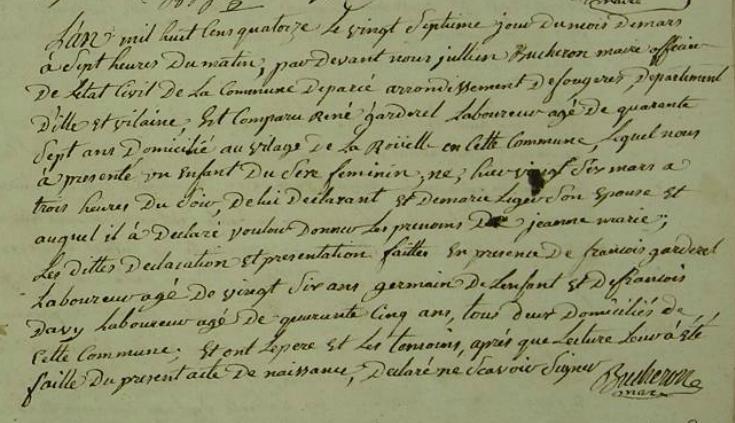 maire
L'an mil huit Cens quatorze Le vingt Septieme jour Dumois Demars
à Sept heures Du matin, par Devant nous jullien Bucheron maire officier
De Letat Civil De La Commune Deparcé arrondissement Defougeres, Departement
D'ille Et vilaine, Est Comparu René garderel Laboureur agé De quarente
Sept ans Domicilié au vilage De La Roüelle en Cette Commune, Lequel nous
à presenté un Enfant Du Sexe feminin, né, hier vingt Six mars a
trois heures Du Soir, De lui Declarant Et Demarie Liger Son Epouse Et
auquel il à Declaré vouloir Donner Les prenoms De jeanne marie,;
Les Dittes Declaration Et presentation faittes En presence De françois garderel
Laboureur agé De vingt Six ans, germain De L'enfant Et Defrancois
Davy Laboureur agé De quarante Cinq ans, tous Deux Domiciliés De
Cette Commune; Et ont Lepere Et Les temoins, aprés que Lecture Leur à Eté
faitte Du present acte De naissance, Declaré ne Scavoir Signer
Bucheron
maire